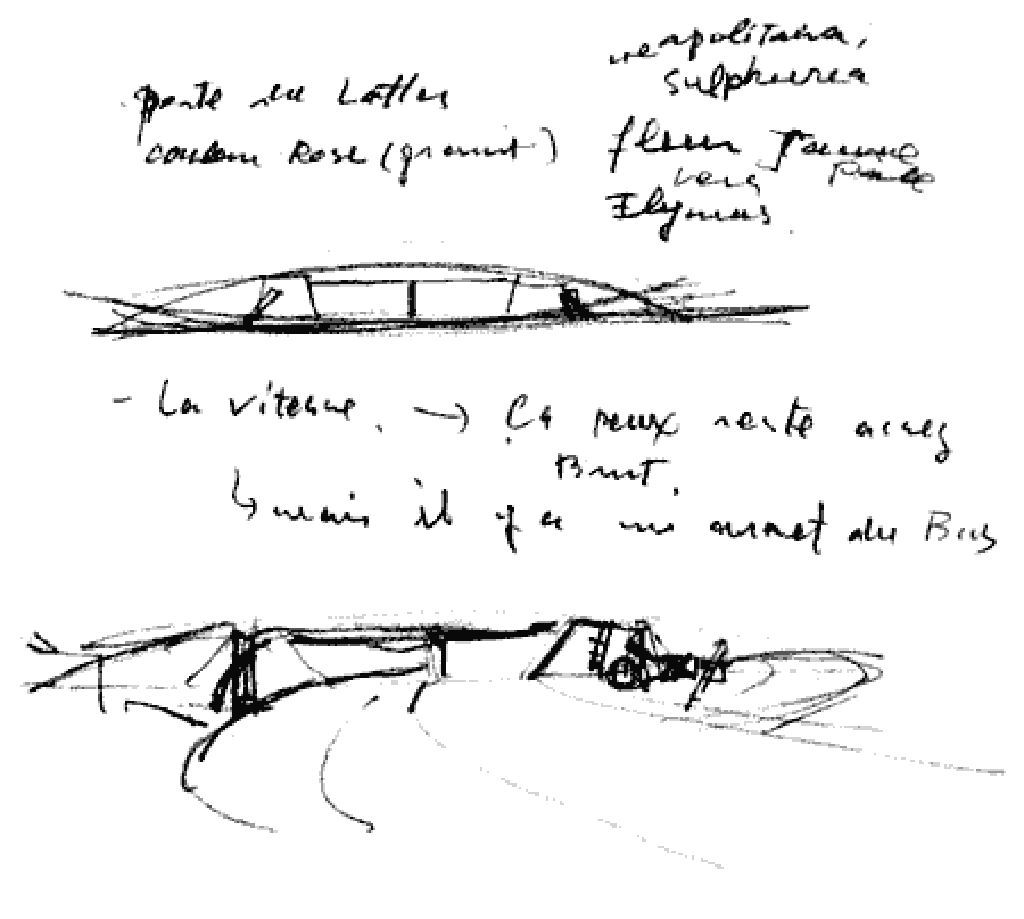 neapolitana,
sulphurea
porte en Lattes
couleur Rose (granit)
fleur Jaune
Pale
vers
Elymus.
- La vitesse, → Ça peux reste assez
Brut,
↳ mais il y a un du Bus